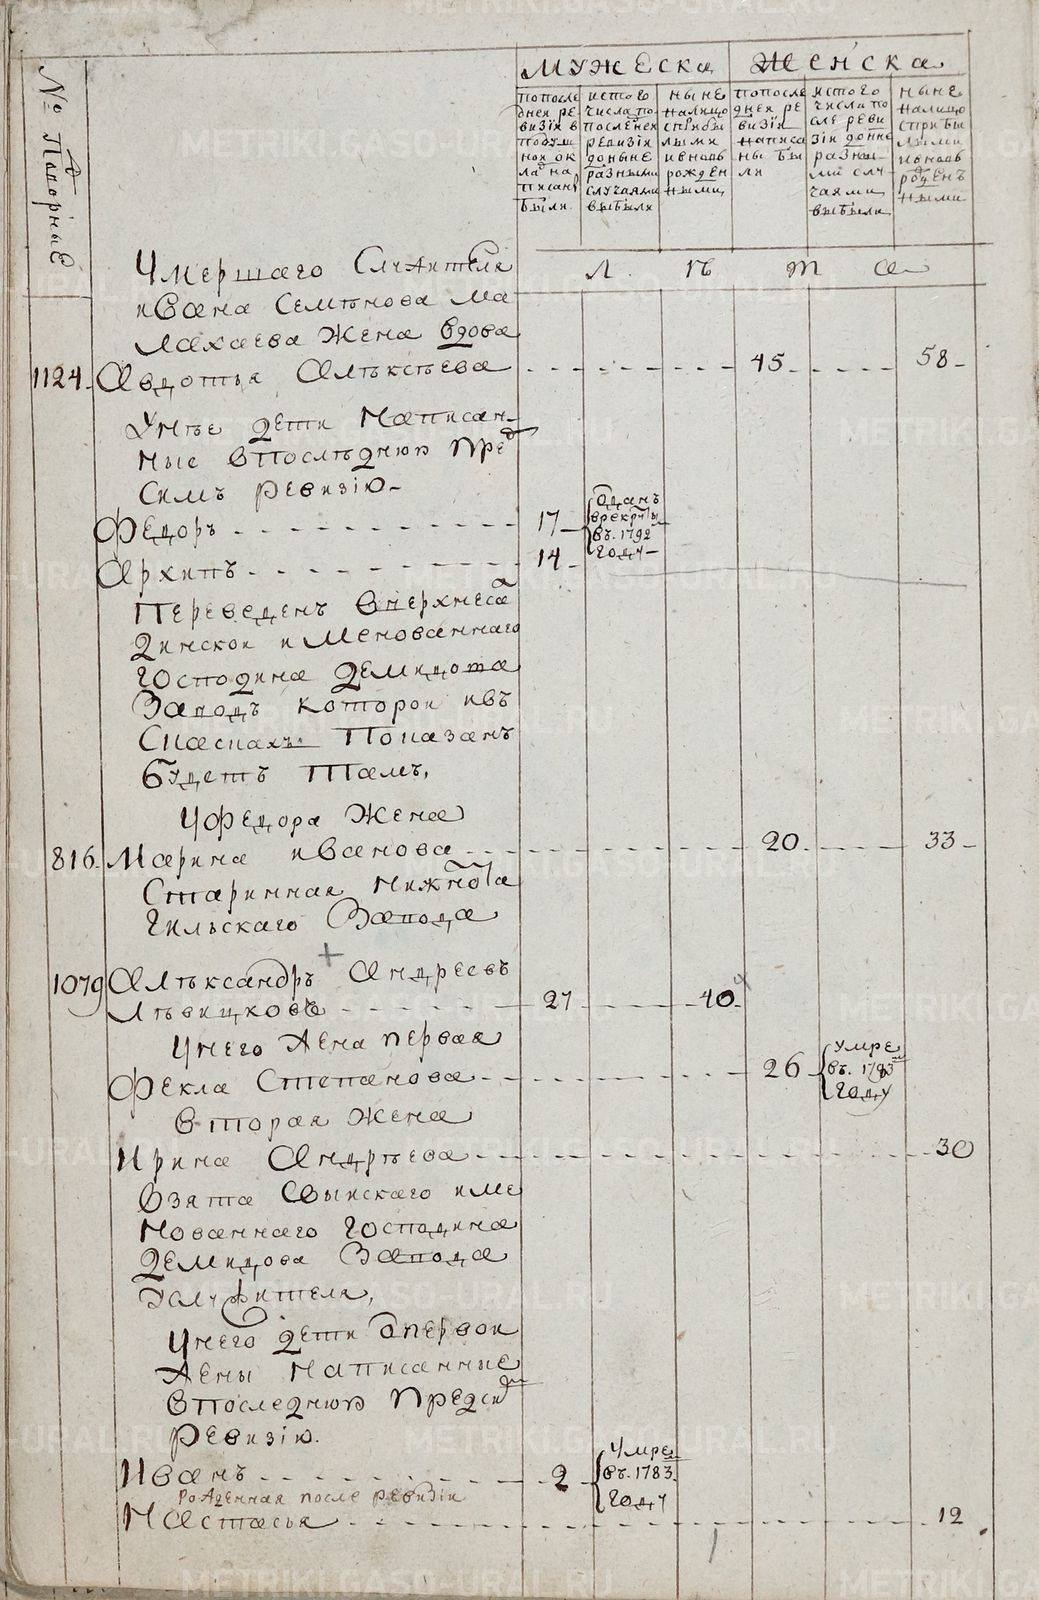 № Подорные
МУЖЕСКА ЖЕНСКА
попосле
днея ре
визiи в
подуш
ной ок
лад на
писан
были
истого
числа по
последней
ревизiи
доныне
разными
случаями
выбыли
ныне
налицо
сприбы
лыми
ивновь
рожден
ными
попосле
дней ре
визiи
написа
ны бы
ли
истого
числа по
сле реви
зiи доны
разны
ми слу
чаями
выбыли
ныне
налицо
сприбы
лыми
ивновь
рожденъ
ными
Л ѣ т а
Умершаго Служителя
ивана Семѣнова Ма
лахаева Жена вдова
1124. Авдотья Алѣксѣева 45 58
Унѣе дети Написан
ные впослѣднюю пред
Симъ ревизiю
Федоръ 17
Отданъ
врекруты
въ. 1792
году
Архипъ 14
Переведенъ вверхнеса
динской имЕнованнаго
господина Демидова
Заводъ которой ивъ
Сказкахъ Показанъ
будетъ Тамъ,
Уфедора Жена
816. Марина иванова 20. 33
Старинная Нижнота
гильскаго Завода
1079 Алѣксандръ Андреевъ
Лѣвщковъ 27 40.
Унего Жена первая
Фекла Степанова 26
Умре
въ. 1783
году
вторая Жена
Ирина Андрѣева 30
Взята Свыйскаго име
нованнаго господина
Демидова Завода
Унего дети Отпервой
Жены написанные
впоследнюю Предсим
Ревизiю.
Иванъ 2
Умре
въ. 1783.
году
Рожденная после ревизiи
Настасья 12
METRIKI.GASO-URAL.RU